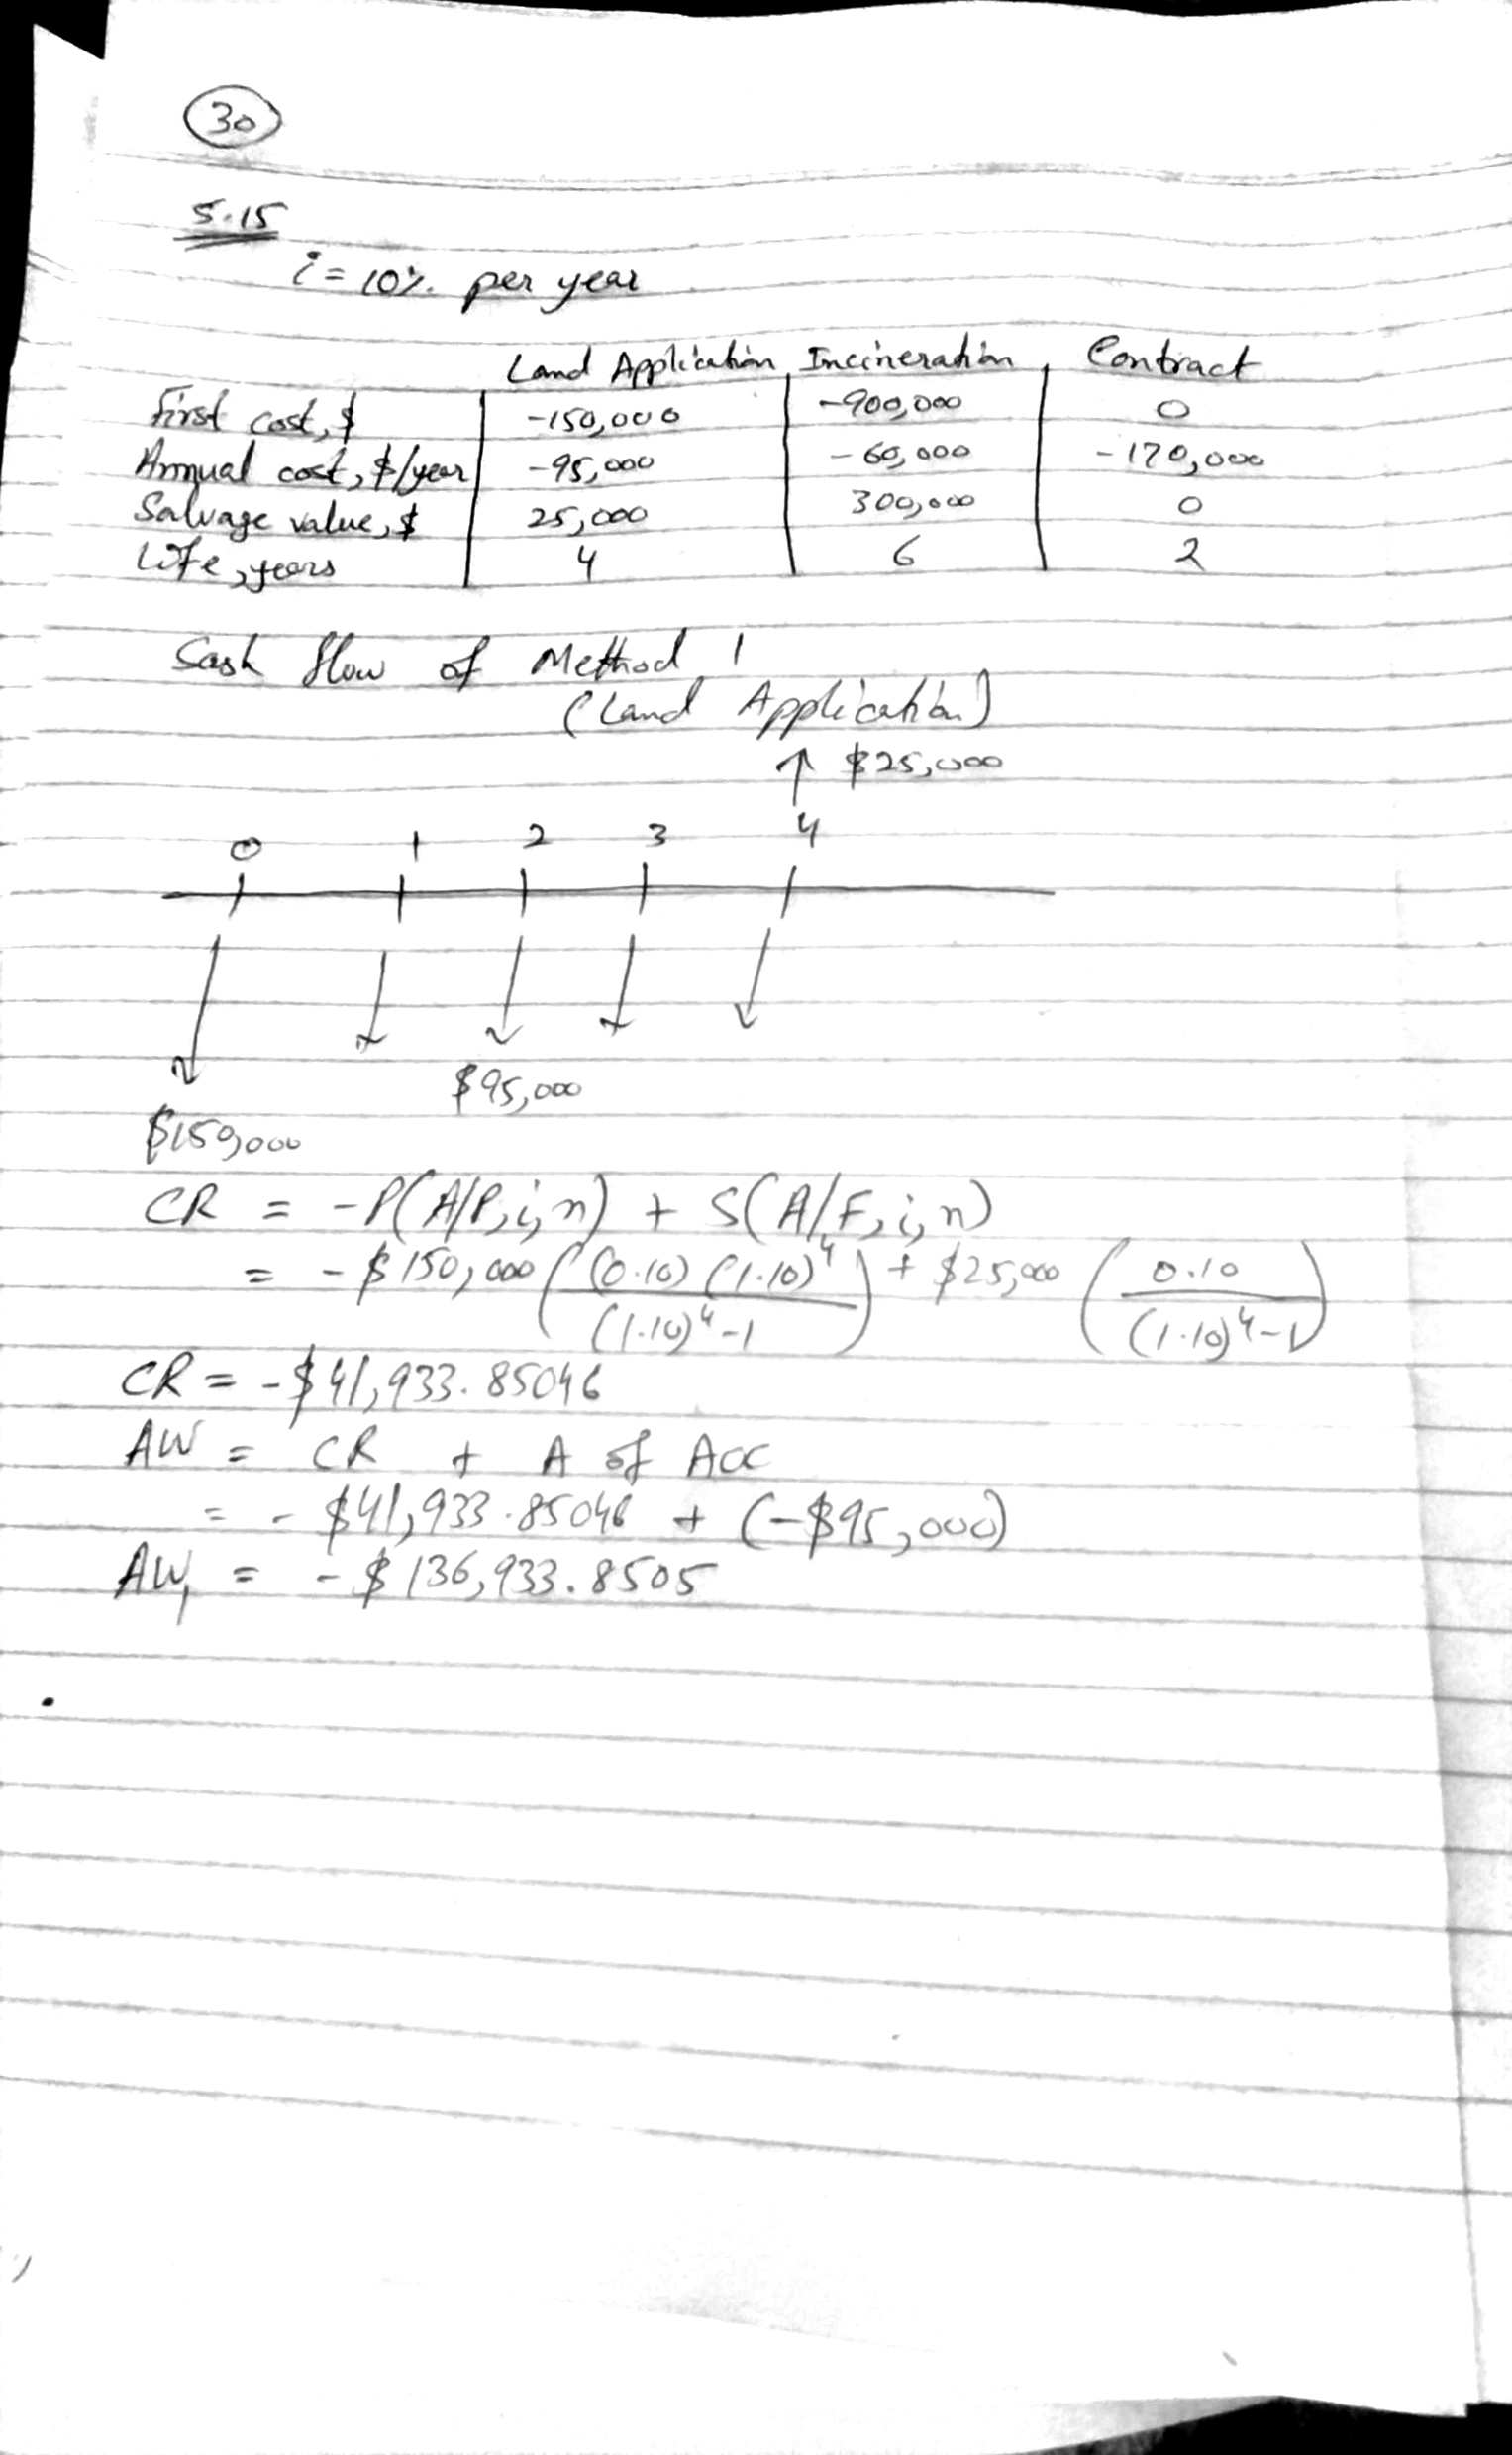 30
5.15
i = 10% per year
Land Application Incineration Contract
First cost, $ -150,000 -900,000 0
Annual cost, $/year -95,000 -60,000 -170,000
Salvage value, $ 25,000 300,000 0
Life, years 4 6 2
Cash flow of Method 1
(Land Application)
↑ $25,000
0 1 2 3 4
$95,000
$150,000
CR = -P(A/P, i, n) + S(A/F, i, n)
= -$150,000 ((0.10) (1.10)^4 / (1.10)^4 - 1) + $25,000 (0.10 / (1.10)^4 - 1)
CR = -$41,933.85046
AW = CR + A of AOC
= -$41,933.85046 + (-$95,000)
AW₁ = -$136,933.8505